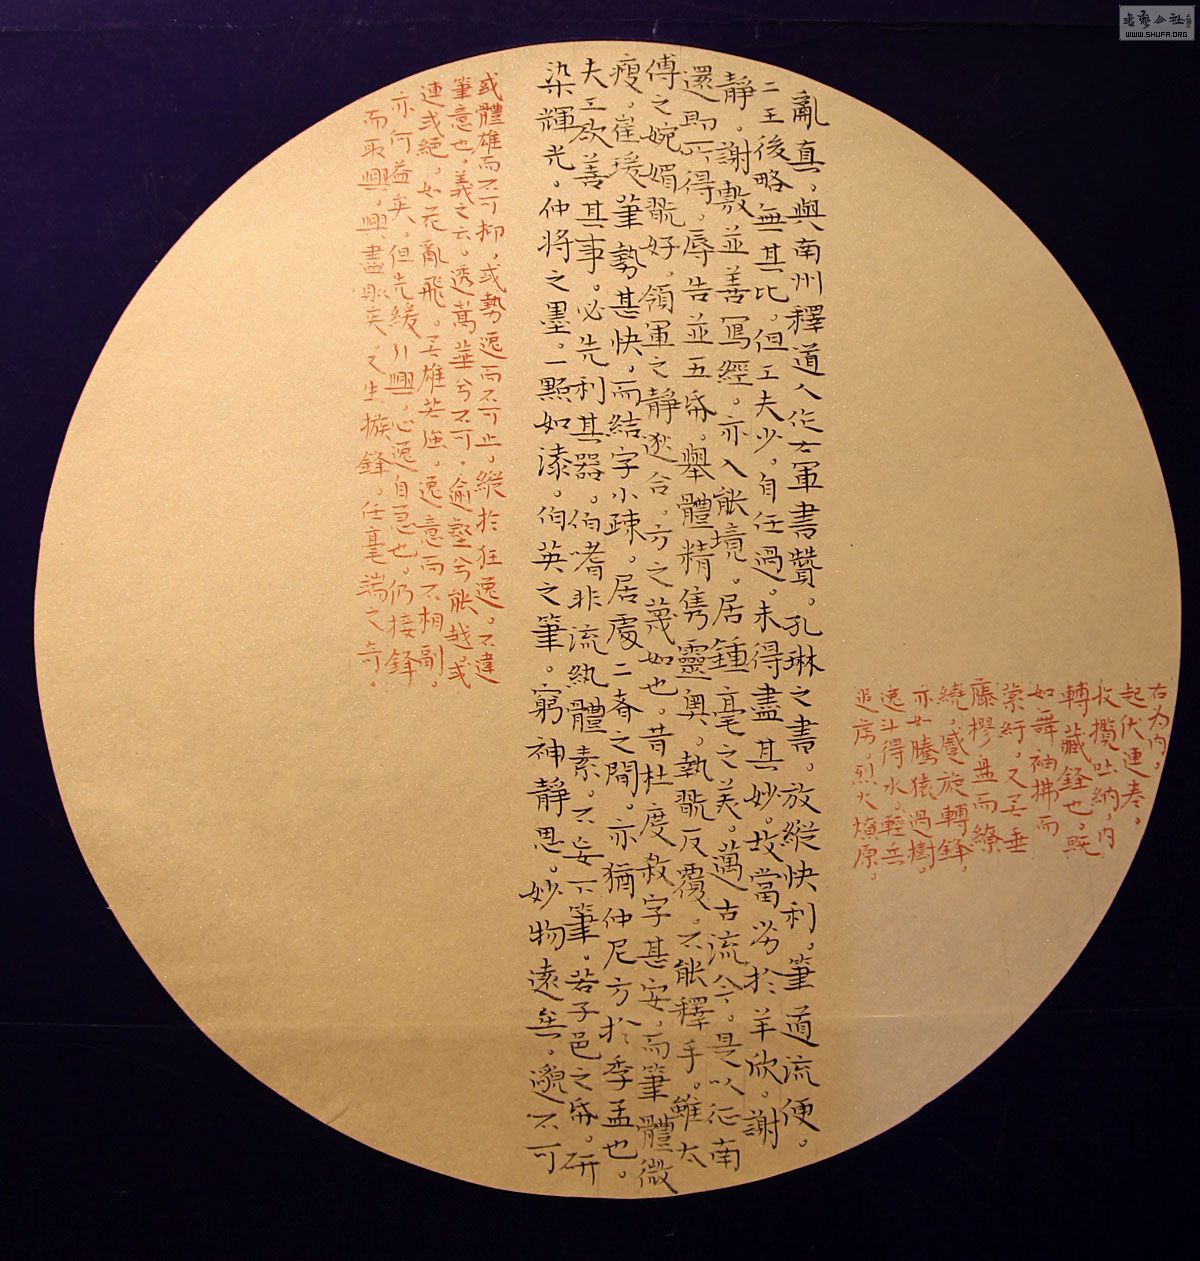 右为内。
起伏連卷。
收攬吐納，内
轉藏鋒也。既
如舞袖拂而
縈紆。又若垂
藤樛盘而繚
繞。蹙旋轉鋒，
亦如騰猿過樹。
逸斗得水。輕兵
追虜。烈火燎原。
亂真，與南州釋道人作右軍書贊。孔琳之書，放縱快利，筆道流便。
二王後略無其比。但工夫少，自任過，未得盡其妙。故當劣於羊欣。謝
靜。謝敷並善寫經，亦入能境。居鍾毫之美。邁古流今。是以征南
還即所得。辱告並五紙。舉體精雋靈奥。執翫反覆。不能釋手。雖太
傅之婉媚翫好，領軍之靜遒合，方之蔑如也。昔杜度殺字甚安，而筆體微
瘦。崔瑗筆勢甚快，而結字小疎。居處二者之間，亦猶仲尼方於季孟也。
夫工欲善其事。必先利其器。伯喈非流紈體素。不妄下筆。若子邑之紙。研
染輝光。仲将之墨。一點如漆。伯英之筆。窮神靜思。妙物遠矣，邈不可
或體雄而不可抑，或勢逸而不可止，縱於狂逸，不違
筆意也。羲之云。透嵩華兮不可，逾壑兮能越，或
連或絕，如花亂飛。若雄若强，逸意而不相副。
亦何益矣，但先緩引興，心逸自急也。仍接鋒
而取興，興盡則矣，又生搋鋒。任毫端之奇。
書藝公社
WWW.SHUFA.ORG